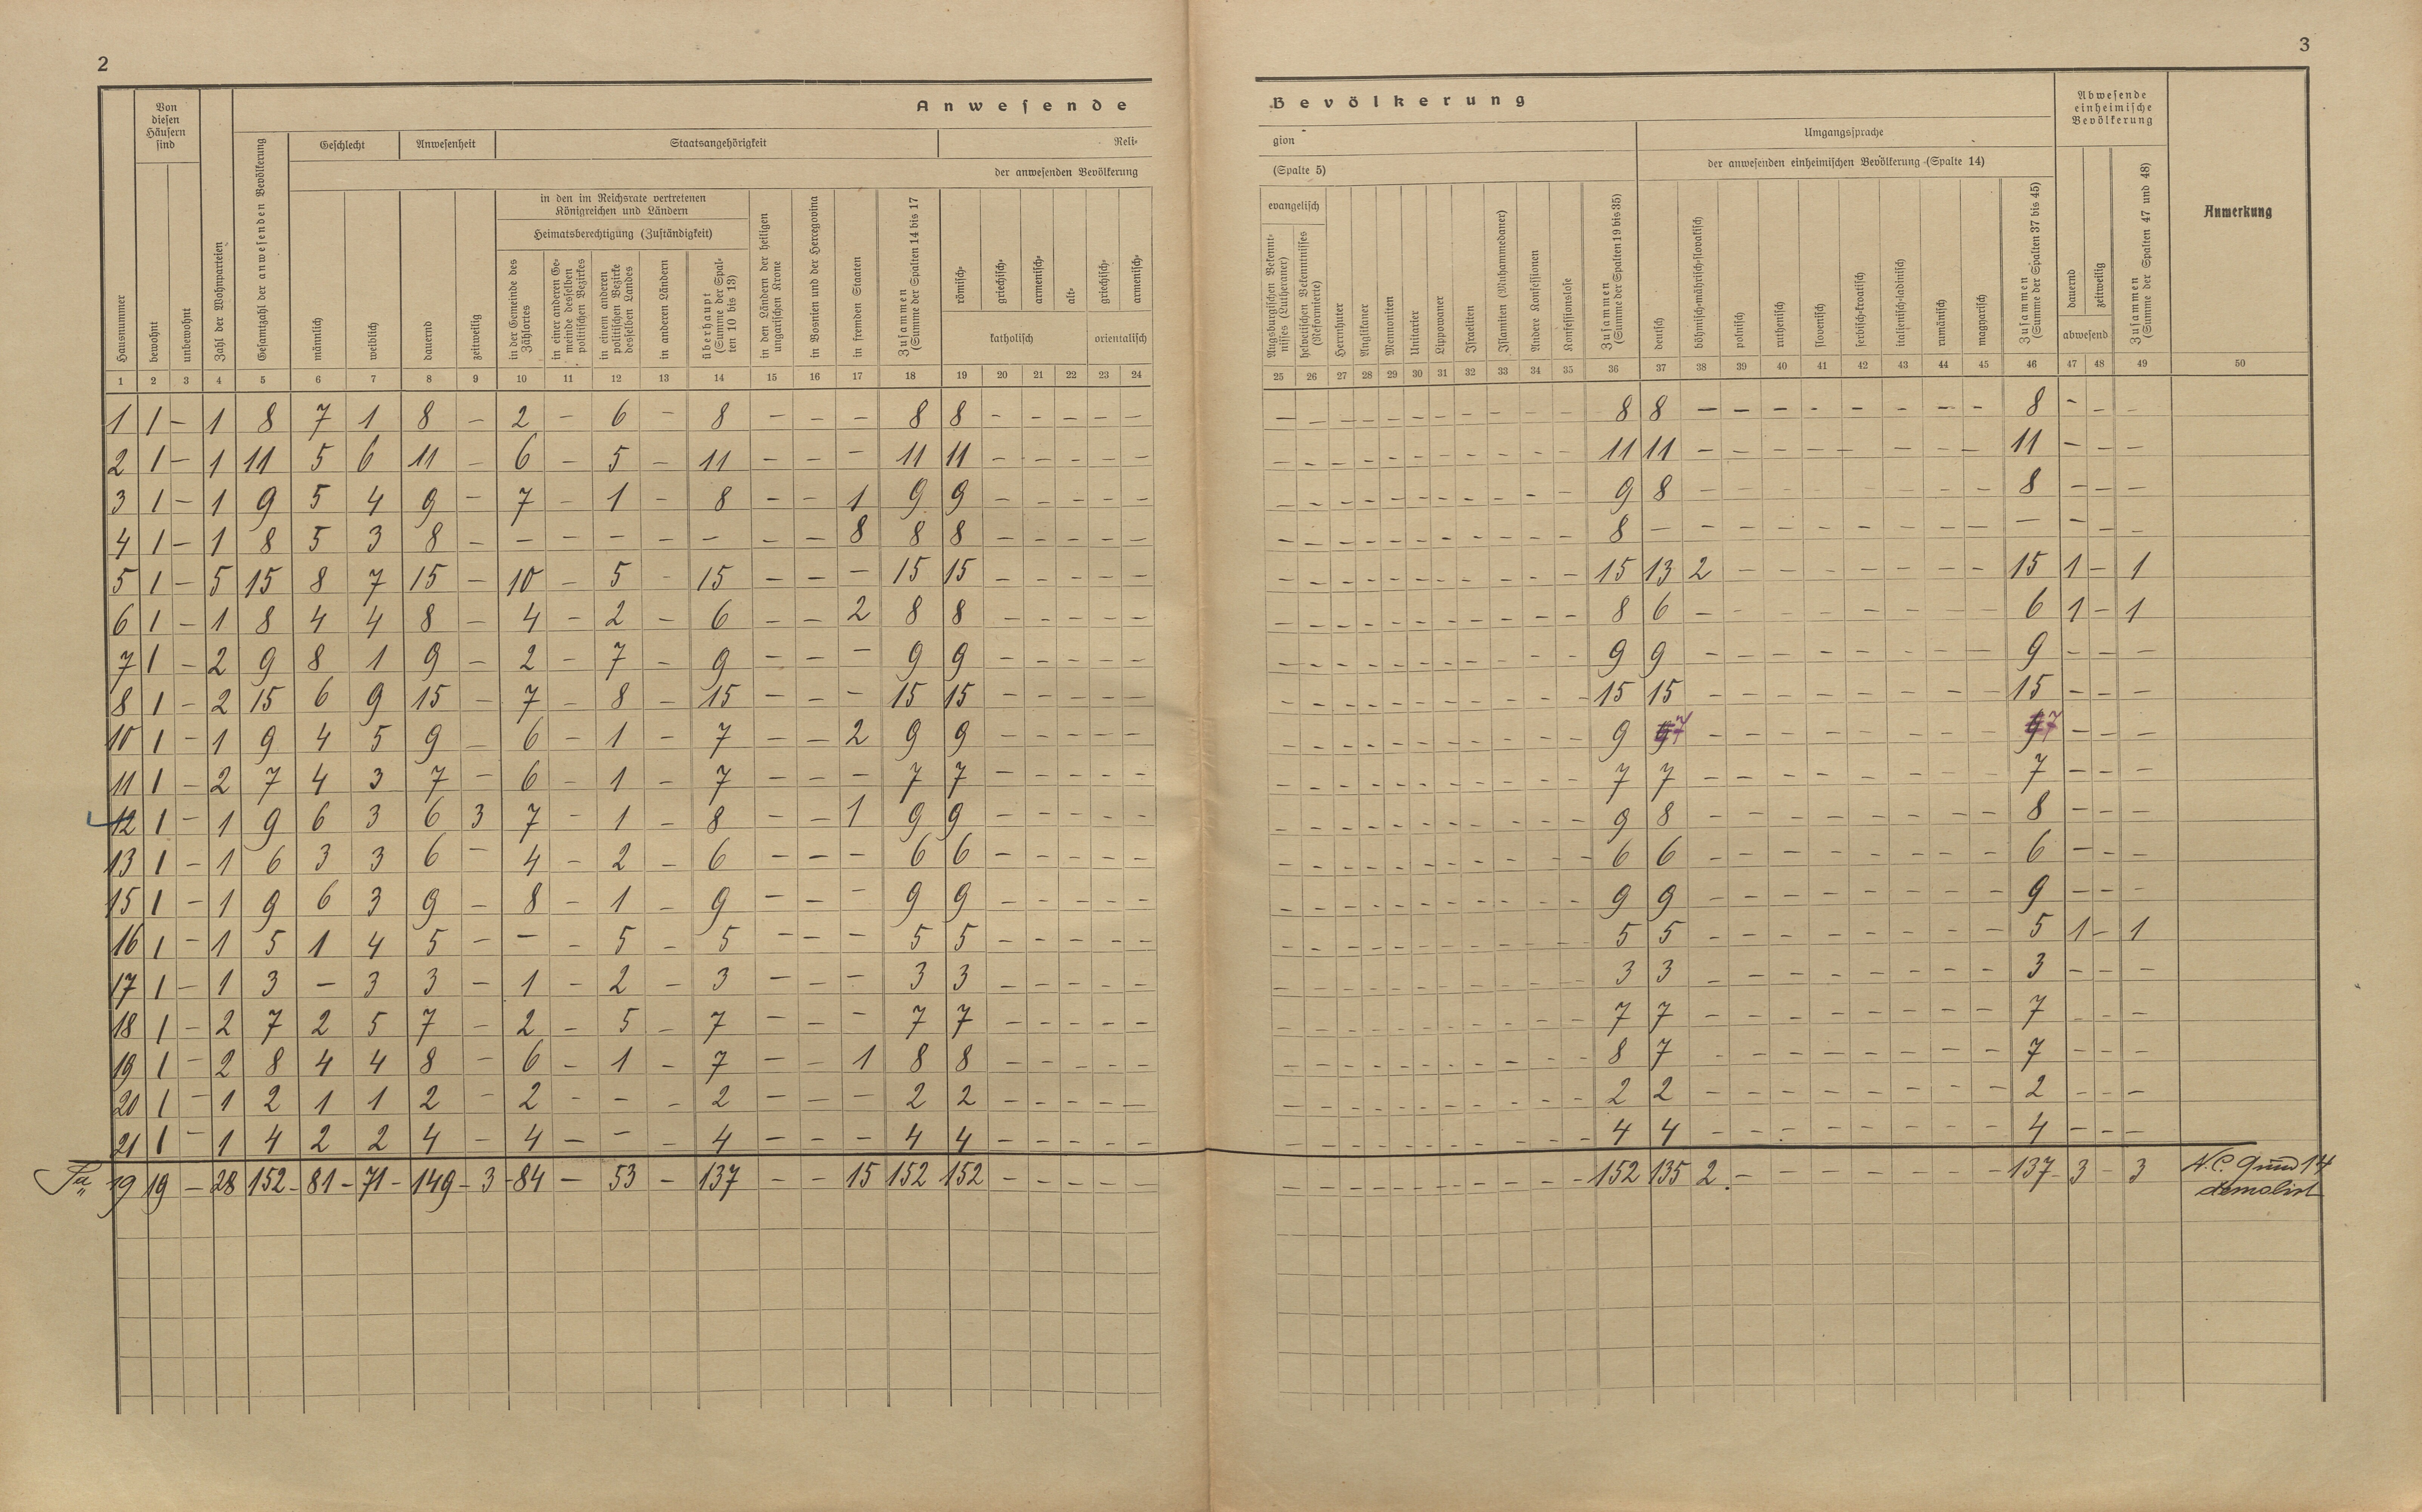 2
3
Anwesende
Bevölkerung
Von diesen Häusern sind
Geschlecht
Anwesenheit
Staatsangehörigkeit
Reli-
gion
der anwesenden Bevölkerung
(Spalte 5)
Umgangssprache
der anwesenden einheimischen Bevölkerung (Spalte 14)
Abwesende einheimische Bevölkerung
Anmerkung
in den im Reichsrate vertretenen Königreichen und Ländern
Heimatsberechtigung (Zuständigkeit)
evangelisch
Hausnummer
bewohnt
unbewohnt
Zahl der Wohnparteien
Gesamtzahl der anwesenden Bevölkerung
männlich
weiblich
dauernd
zeitweilig
in der Gemeinde des Zählortes
in einer anderen Gemeinde desselben politischen Bezirkes
in einem anderen politischen Bezirke desselben Landes
in anderen Ländern
überhaupt (Summe der Spalten 10 bis 13)
in den Ländern der heiligen ungarischen Krone
in Bosnien und der Hercegovina
in fremden Staaten
Zusammen (Summe der Spalten 14 bis 17)
römisch-
griechisch-
armenisch-
alt-
katholisch
griechisch-
armenisch-
orientalisch
Augsburgischen Bekenntnisses (Lutheraner)
helvetischen Bekenntnisses (Reformierte)
Herrnhuter
Anglikaner
Mennoniten
Unitarier
Lippowaner
Israeliten
Islamiten (Muhammedaner)
Andere Konfessionen
Konfessionslose
Zusammen (Summe der Spalten 19 bis 35)
deutsch
böhmisch-mährisch-slovakisch
polnisch
ruthenisch
slovenisch
serbisch-kroatisch
italienisch-ladinisch
rumänisch
magyarisch
Zusammen (Summe der Spalten 37 bis 45)
dauernd
zeitweilig
abwesend
Zusammen (Summe der Spalten 47 und 48)
1 2 3 4 5 6 7 8 9 10 11 12 13 14 15 16 17 18 19 20 21 22 23 24 25 26 27 28 29 30 31 32 33 34 35 36 37 38 39 40 41 42 43 44 45 46 47 48 49 50
1 1 – 1 8 7 1 8 – 2 – 6 – 8 – – – 8 8 – – – – – – – – – – – – – – – – 8 8 – – – – – – – – 8 – – –
2 1 – 1 11 5 6 11 – 6 – 5 – 11 – – – 11 11 – – – – – – – – – – – – – – – – 11 11 – – – – – – – – 11 – – –
3 1 – 1 9 5 4 9 – 7 – 1 – 8 – – 1 9 9 – – – – – – – – – – – – – – – – 9 8 – – – – – – – – 8 – – –
4 1 – 1 8 5 3 8 – – – – – – – – 8 8 8 – – – – – – – – – – – – – – – – 8 – – – – – – – – – – – – –
5 1 – 5 15 8 7 15 – 10 – 5 – 15 – – – 15 15 – – – – – – – – – – – – – – – – 15 13 2 – – – – – – – 15 1 – 1
6 1 – 1 8 4 4 8 – 4 – 2 – 6 – – 2 8 8 – – – – – – – – – – – – – – – – 8 6 – – – – – – – – 6 1 – 1
7 1 – 2 9 8 1 9 – 2 – 7 – 9 – – – 9 9 – – – – – – – – – – – – – – – – 9 9 – – – – – – – – 9 – – –
8 1 – 2 15 6 9 15 – 7 – 8 – 15 – – – 15 15 – – – – – – – – – – – – – – – – 15 15 – – – – – – – – 15 – – –
10 1 – 1 9 4 5 9 – 6 – 1 – 7 – – 2 9 9 – – – – – – – – – – – – – – – – 9 7 – – – – – – – – 7 – – –
11 1 – 2 7 4 3 7 – 6 – 1 – 7 – – – 7 7 – – – – – – – – – – – – – – – – 7 7 – – – – – – – – 7 – – –
12 1 – 1 9 6 3 6 3 7 – 1 – 8 – – 1 9 9 – – – – – – – – – – – – – – – – 9 8 – – – – – – – – 8 – – –
13 1 – 1 6 3 3 6 – 4 – 2 – 6 – – – 6 6 – – – – – – – – – – – – – – – – 6 6 – – – – – – – – 6 – – –
15 1 – 1 9 6 3 9 – 8 – 1 – 9 – – – 9 9 – – – – – – – – – – – – – – – – 9 9 – – – – – – – – 9 – – –
16 1 – 1 5 1 4 5 – – – 5 – 5 – – – 5 5 – – – – – – – – – – – – – – – – 5 5 – – – – – – – – 5 1 – 1
17 1 – 1 3 – 3 3 – 1 – 2 – 3 – – – 3 3 – – – – – – – – – – – – – – – – 3 3 – – – – – – – – 3 – – –
18 1 – 2 7 2 5 7 – 2 – 5 – 7 – – – 7 7 – – – – – – – – – – – – – – – – 7 7 – – – – – – – – 7 – – –
19 1 – 2 8 4 4 8 – 6 – 1 – 7 – – 1 8 8 – – – – – – – – – – – – – – – – 8 7 – – – – – – – – 7 – – –
20 1 – 1 2 1 1 2 – 2 – – – 2 – – – 2 2 – – – – – – – – – – – – – – – – 2 2 – – – – – – – – 2 – – –
21 1 – 1 4 2 2 4 – 4 – – – 4 – – – 4 4 – – – – – – – – – – – – – – – – 4 4 – – – – – – – – 4 – – –
19 19 – 28 152 81 71 149 3 84 – 53 – 137 – – 15 152 152 – – – – – – – – – – – – – – – – 152 135 2 – – – – – – – 137 3 – 3 N.C. 9 und 14
demolirt